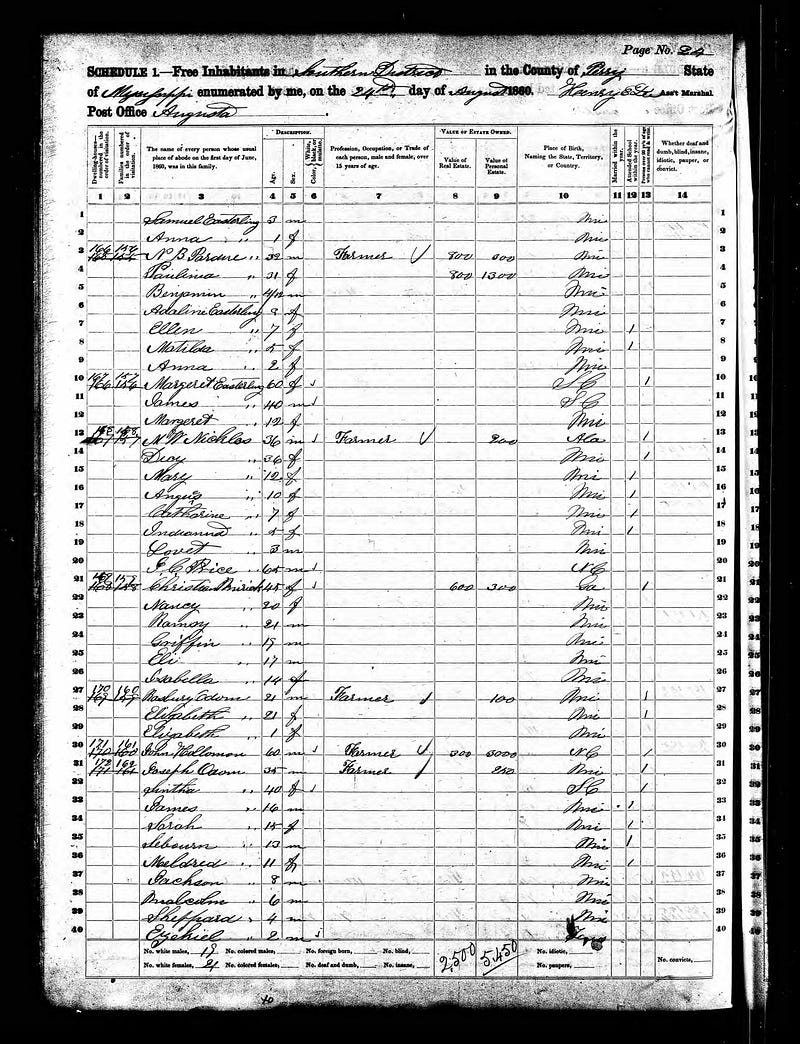 Page No. 24
SCHEDULE 1.—Free Inhabitants in Southern District in the County of Perry State
of Mississippi enumerated by me, on the 24th day of August 1860. Ass't Marshal
Post Office Augusta
DESCRIPTION. VALUE OF ESTATE OWNED.
Dwelling-houses— numbered in the order of visitation. Families numbered in the order of visitation. The name of every person whose usual place of abode on the first day of June, 1860, was in this family. Age. Sex. Color, White, black, or mulatto. Profession, Occupation, or Trade of each person, male and female, over 15 years of age. Value of Real Estate. Value of Personal Estate. Place of Birth, Naming the State, Territory, or Country. Married within the year. Attended School within the year. Whether deaf and dumb, blind, insane, idiotic, pauper, or convict.
1 2 3 4 5 6 7 8 9 10 11 12 13 14
1 Samuel Easterling 3 m Mi 1
2 Anna " 1 f Mi 2
3 166 156 N B Pardue " 32 m Farmer 800 Mi 3
4 Paulina " 31 f 800 1300 Mi 4
5 Benjamin " 4/12 m Mi 5
6 Adaline Easterling f Mi 6
7 Ellen " 7 f Mi 1 7
8 Matilda " 5 f Mi 1 8
9 Anna " 2 f Mi 9
10 167 157 Margeret Easterling 60 f S C 1 10
11 James " 40 m S C 11
12 Margeret " 12 f Mi 12
13 168 158 N W Nichlos 36 m Farmer 200 Ala 1 13
14 " 36 f Mi 1 14
15 Mary " 12 f Mi 1 15
16 Angus " 10 f Mi 1 16
17 Catharine " 7 f Mi 1 17
18 " 5 f Mi 1 18
19 Lovet " 3 m Mi 19
20 Price " 65 m N C 20
21 Christian 45 f 600 300 Ga 1 21
22 Nancy " 20 f Mi 22
23 Ramoy " 21 m Mi 23
24 Griffin " 19 m Mi 24
25 Eli " 17 m Mi 25
26 Isabella " 14 f Mi 26
27 170 160 Odom " 21 m Farmer 100 Mi 1 27
28 Elizabeth " 21 f Mi 1 28
29 Elizabeth " 1 f Mi 29
30 171 161 John Hollomon 60 m Farmer 300 3000 N C 1 30
31 172 162 Joseph Odom " 35 m Farmer 250 Mi 1 31
32 Sintha " 40 f S C 1 32
33 James " 16 m Mi 1 33
34 Sarah " 15 f Mi 1 34
35 Sebourn " 13 m Mi 1 35
36 Meldred " 11 f Mi 1 36
37 Jackson " 8 m Mi 37
38 Malcolm " 6 m Mi 38
39 Sheppard " 4 m Mi 39
40 Ezekiel " 2 m 40
No. white males, 19 No. colored males, No. foreign born, No. blind, 2,500 5,450 No. idiotic,
No. white females, 21 No. colored females, No. deaf and dumb, No. insane, No. paupers, No. convicts,